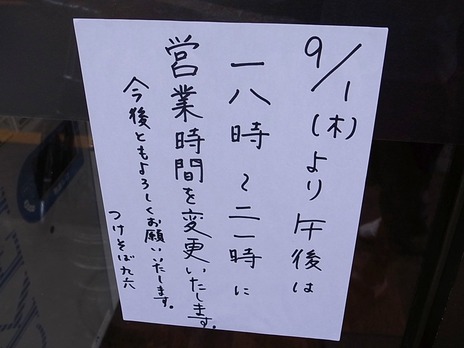 9/1(木)より午後は
一八時～二一時に
営業時間を変更いたします。
今後ともよろしくお願いいたします。
つけそば九六